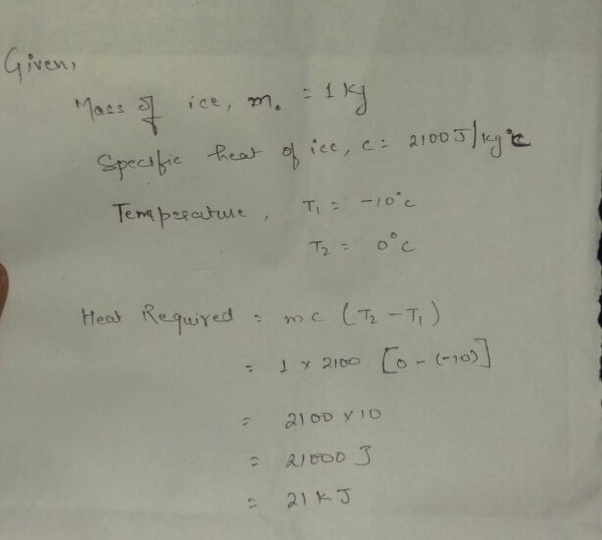 Given,
Mass of ice, m. = 1 kg
Specific heat of ice, c = 2100 J/kg°c
Temperature, T₁ = -10°c
T₂ = 0°c
Heat Required = mc (T₂ - T₁)
= 1 x 2100 [0 - (-10)]
= 2100 x 10
= 21000 J
= 21 kJ